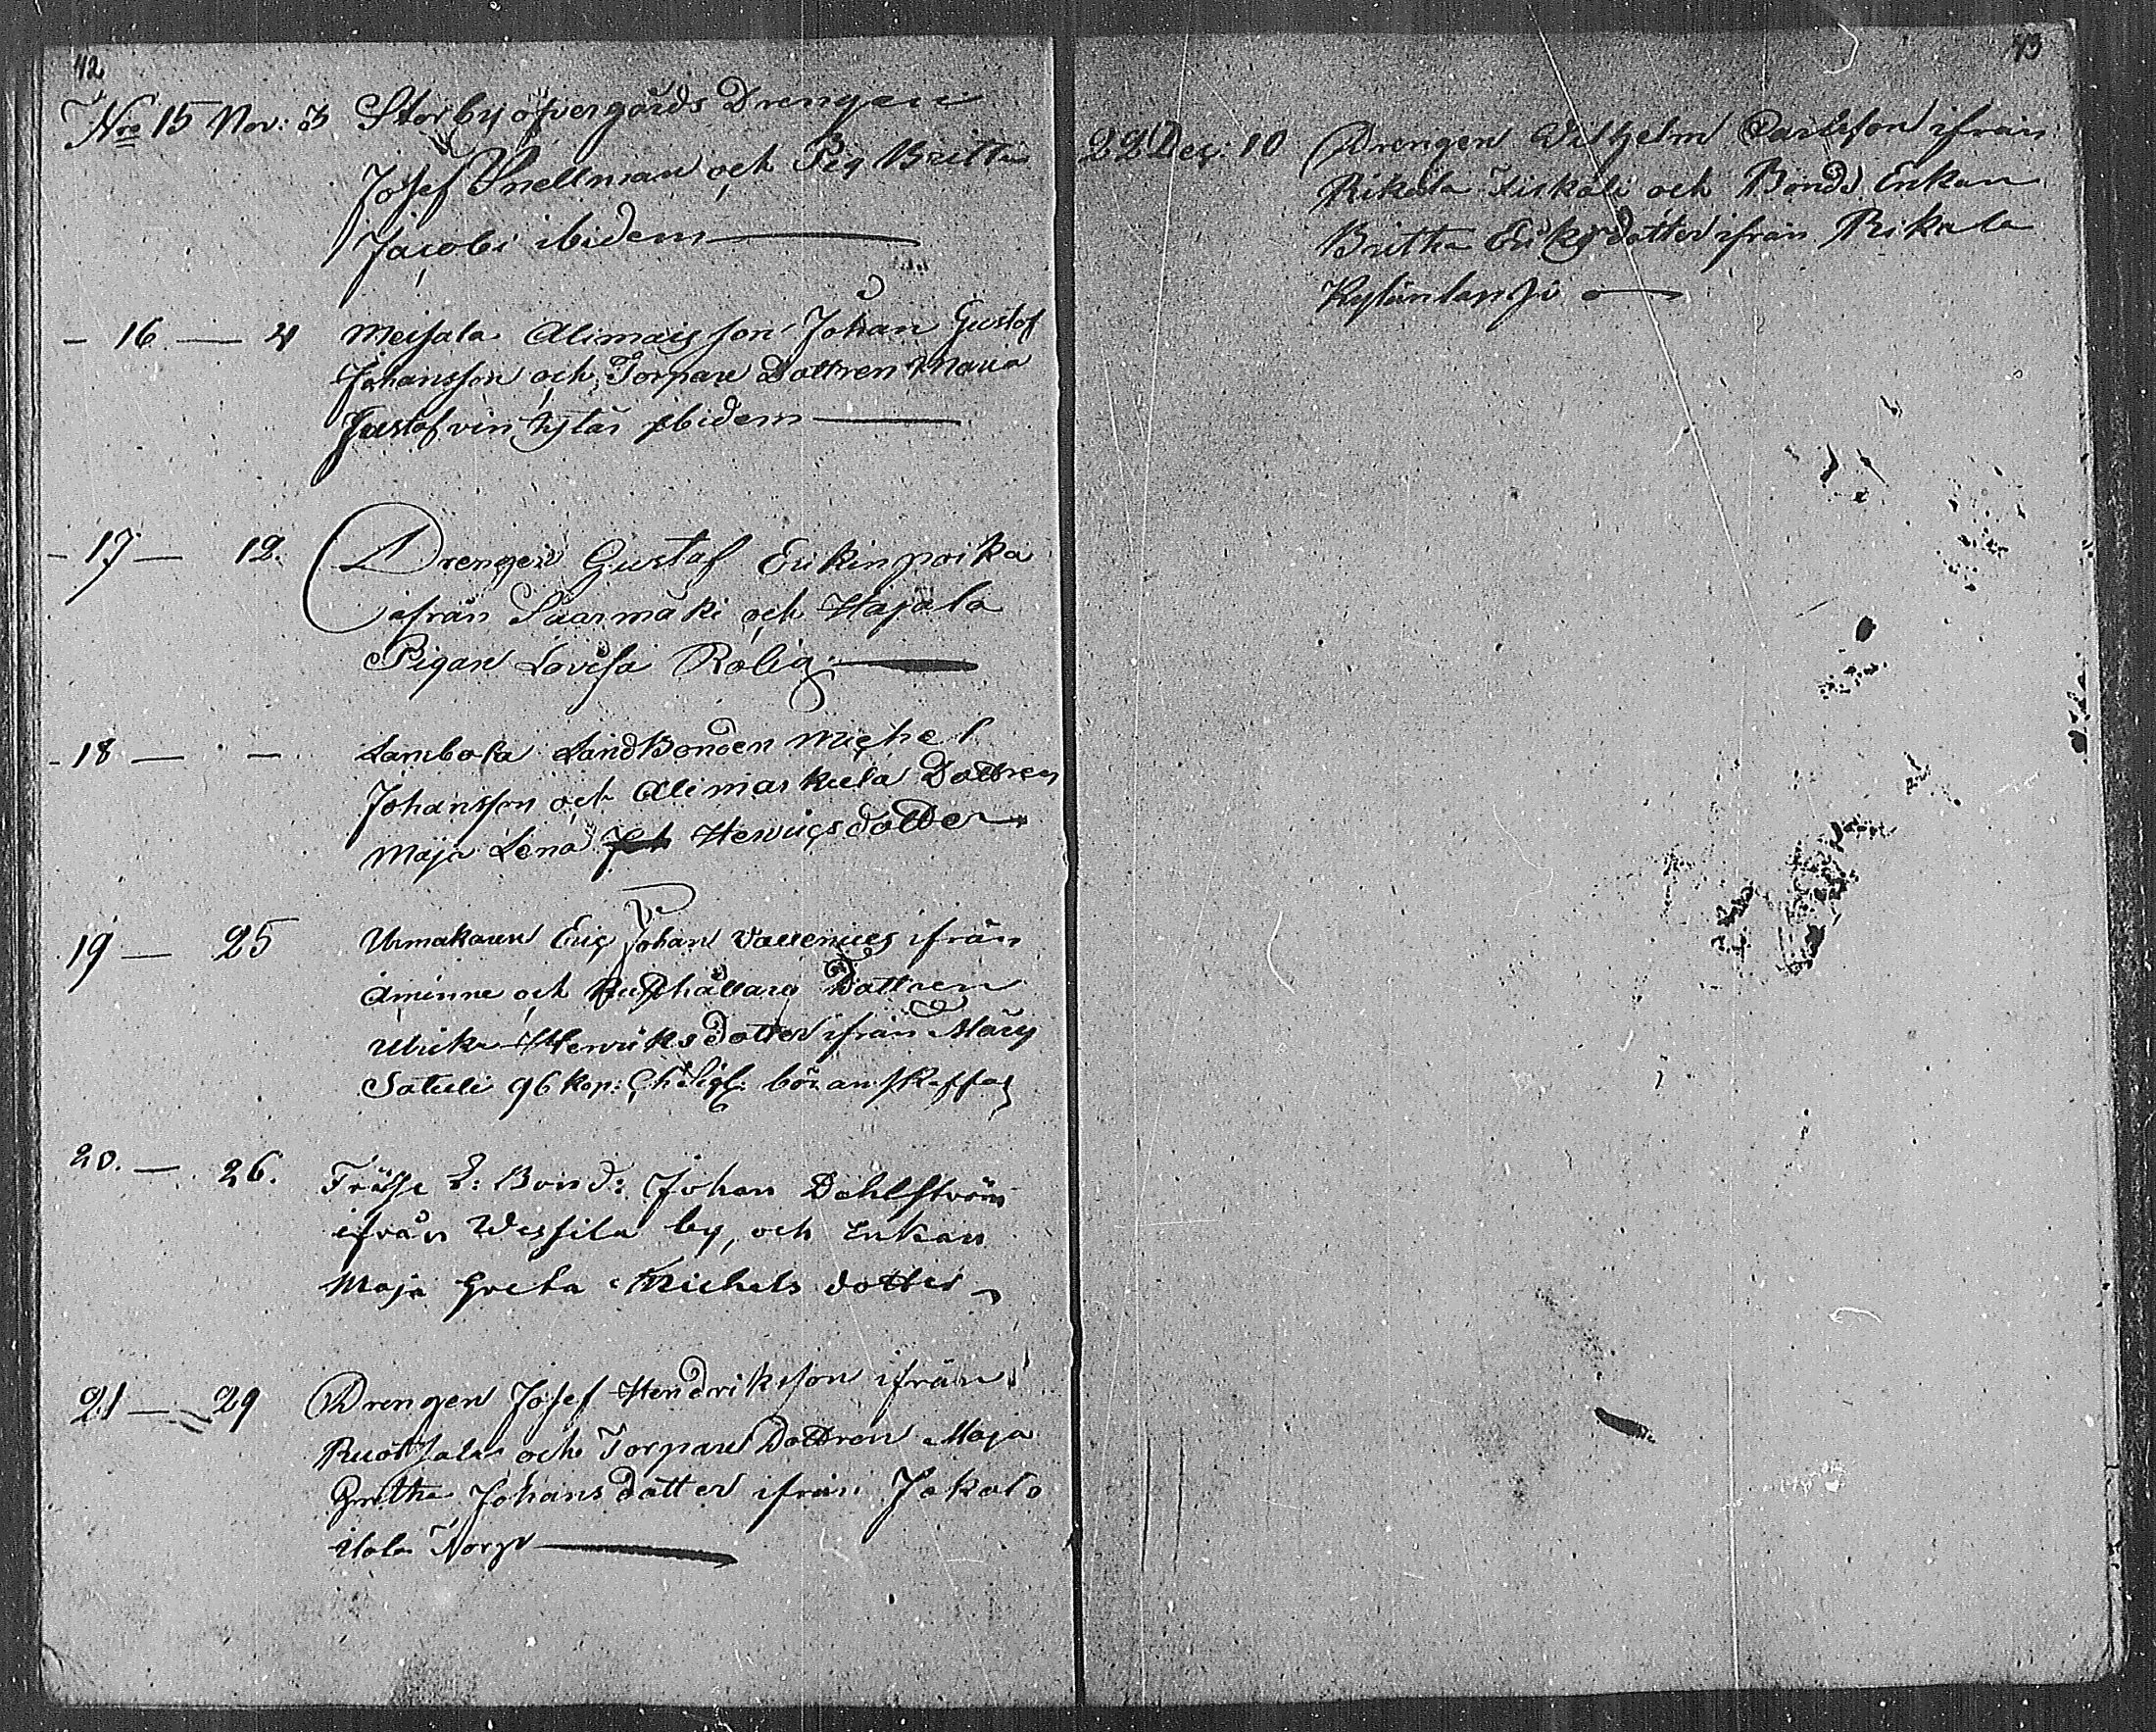 42
Nro 15 Nov: 3 Storby öfvergårds Drengen
Josef Snellman och Pig Britta
Jacobi ibidem
- 16 — 4 Meisala Alimais son Johan Gustof
Johansson och Torpare Dottren Maria
Gustof vin tytär ibidem
- 17 — 12. Drengen Gustaf Erikinpoika
ifrån Saarmäki och Hajala
Pigan Lovisa Rolig
- 18 — - Lambola Landbonden Michel
Johansson och Alimaskula Dottren
Maja Lena Henricsdotter
19 — 25 Urmakaren Eric Johan ifrån
Åminne och Dottren
Ulrika Henriksdotter ifrån
Satuli 96 kop: bör anskaffas
20. — 26. Frälse L: Bond: Johan Dahlström
ifrån Wessila by, och Enkan
Maja Greta Michels dotter
21 — 29 Drengen Josef Hendriksson ifrån
Ruotsala och Torpare Dottren Maja
Greta Johans dotter ifrån Jokalo
Torp
43
22 Dec: 10 Drengen Vilhelm Carlsson ifrån
Rikala Liskola och Bonde Enkan
Britha Eriksdotter ifrån Rikala